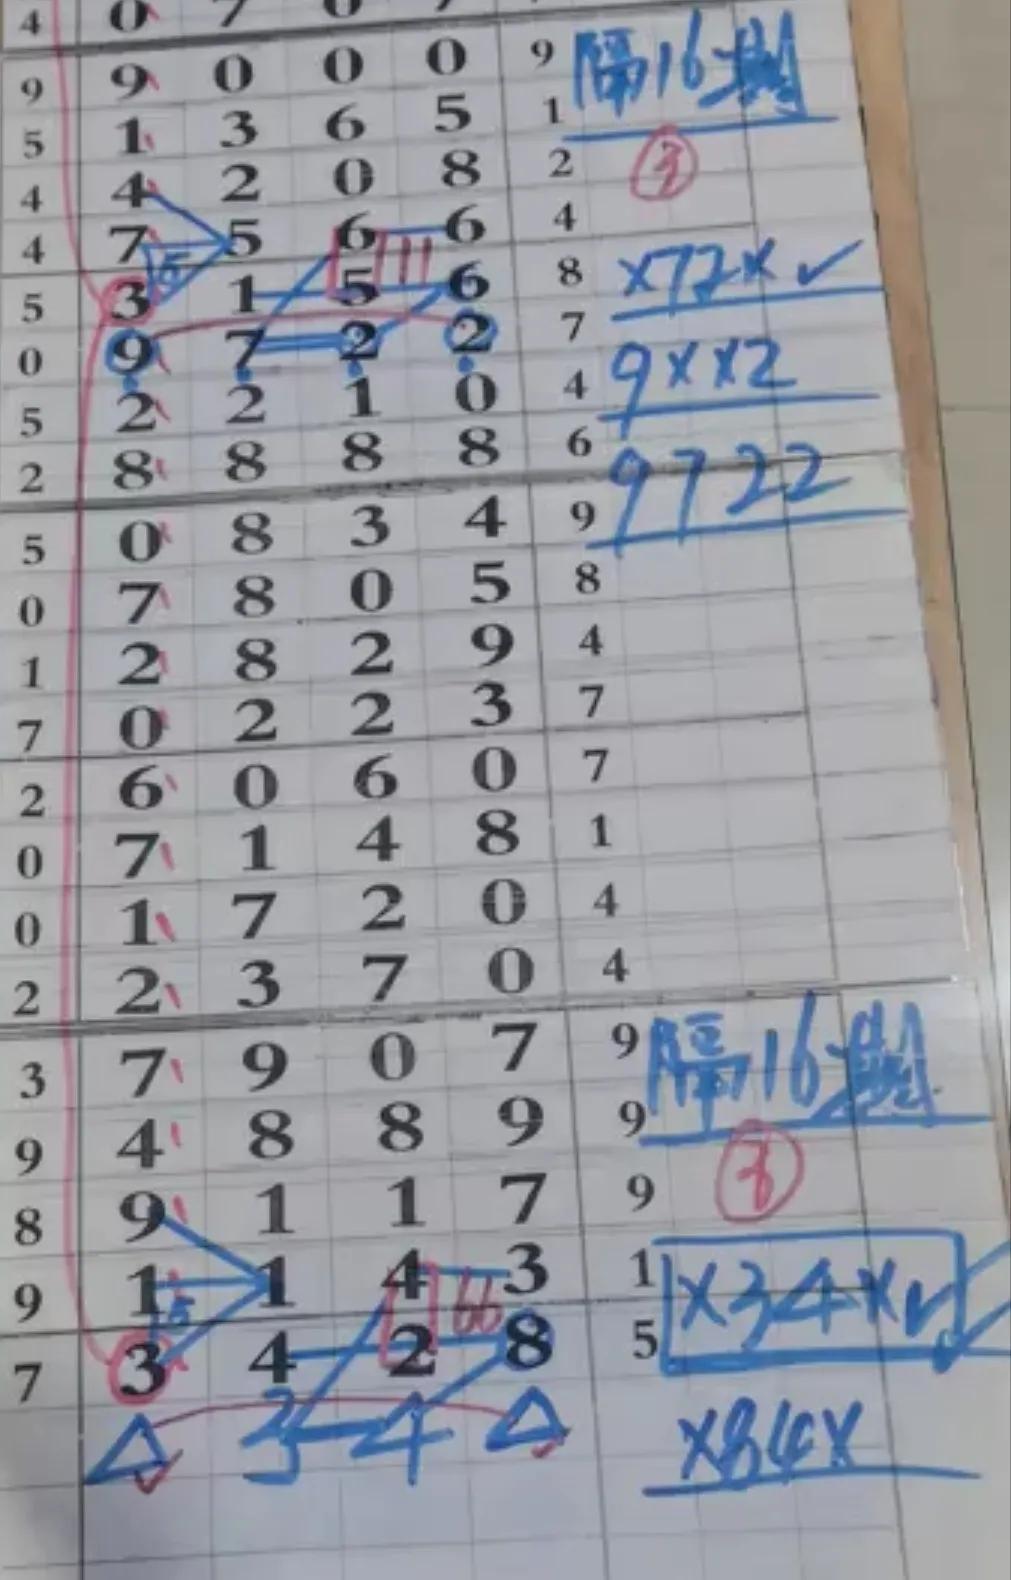 4 0 7 0 7
9 9 0 0 0 9 隔16期
5 1 3 6 5 1
4 4 2 0 8 2
4 7 5 6 6 4
5 3 1 5 6 8 ×72×✓
0 9 7 2 2 7
5 2 2 1 0 4 9××2
2 8 8 8 8 6 9722
5 0 8 3 4 9
0 7 8 0 5 8
1 2 8 2 9 4
7 0 2 2 3 7
2 6 0 6 0 7
0 7 1 4 8 1
0 1 7 2 0 4
2 2 3 7 0 4
3 7 9 0 7 9 隔16期
9 4 8 8 9 9
8 9 1 1 7 9
9 1 1 4 3 1 ×34×✓
7 3 4 2 8 5
3 4 ×84×